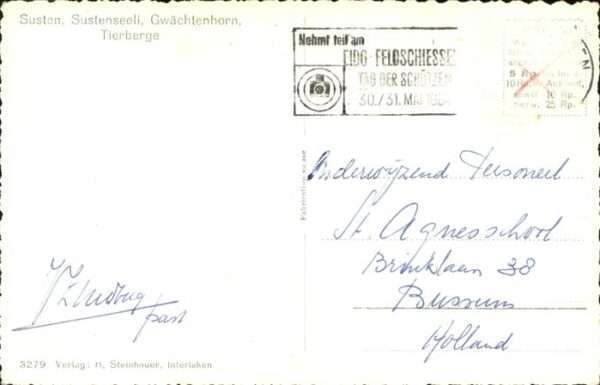 Susten, Sustenseeli, Gwächtenhorn,
Tierberge
Nehmt teil am
EIDG. FELDSCHIESSEN
TAG DER SCHÜTZEN
30./31. MAI
5 Rp.
10 Rp.
10 Rp.
25 Rp.
Onderwijzend Personeel
St. Agnesschool
Brinklaan 38
Bussum
Holland
past
3279 Verlag: H. Steinhauer, Interlaken